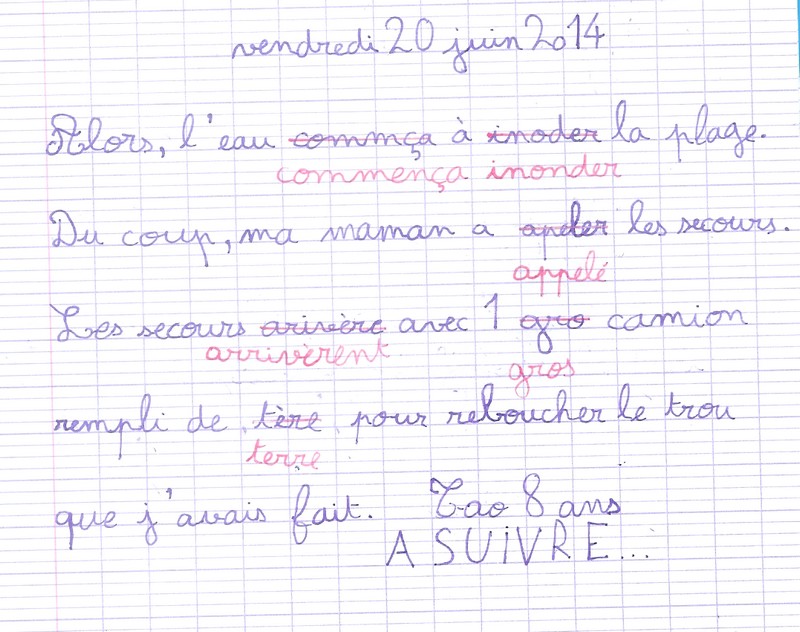 vendredi 20 juin 2014
Alors, l'eau commça à inoder la plage.
commença inonder
Du coup, ma maman a apeler les secours.
appelé
Les secours arivère avec 1 gro camion
arrivèrent
gros
rempli de tère pour reboucher le trou
terre
que j'avais fait. Tao 8 ans
A SUIVRE...